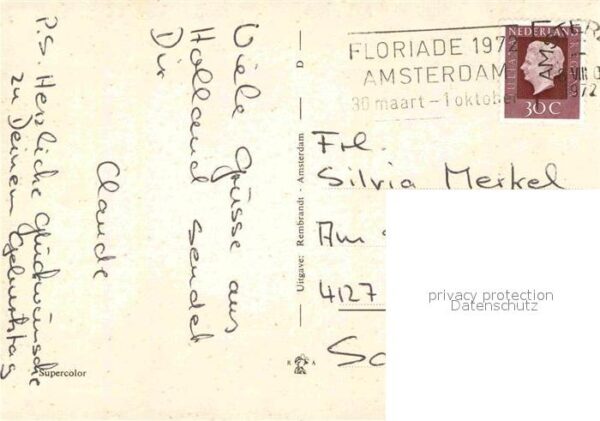 Viele Grüsse aus
Holland sendet
Dir
Claude
P.S. Herzliche Glückwünsche
zu Deinem Geburtstag
Supercolor
Uitgave: Rembrandt - Amsterdam
D
R A
FLORIADE 1972
AMSTERDAM
30 maart - 1 oktober
NEDERLAND
JULIANA REGINA
30 C
1972
Frl.
Silvia Merkel
Am
4127
privacy protection
Datenschutz